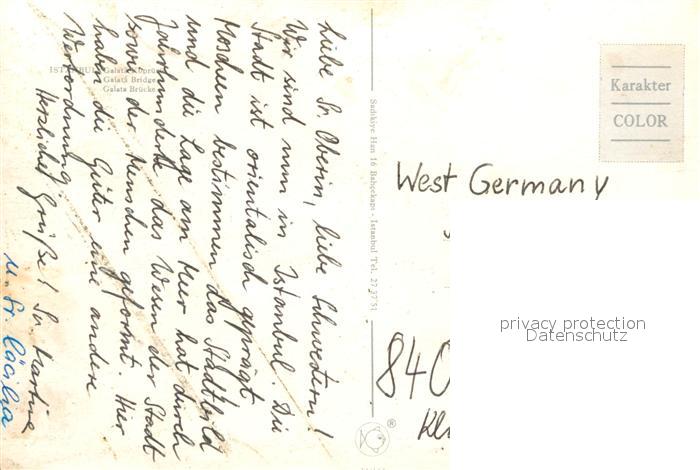 Liebe Sr. Oberin, liebe Schwestern!
Wir sind nun in Istanbul. Die
Stadt ist orientalisch geprägt.
Moscheen bestimmen das Stadtbild
und die Lage am Meer hat durch
Jahrhunderte das Wesen der Stadt
sowie der Menschen geformt. Hier
haben die Güter eine andere
Wertordnung.
Herzliche Grüße! Sr. Martina
u. Sr. Cäcilia
ISTANBUL Galata Köprü
Galata Bridge
Galata Brücke
Sadıkiye Han 16 Bahçekapı - Istanbul Tel. 27 37 51
Karakter
COLOR
West Germany
840
Kl
®
privacy protection
Datenschutz